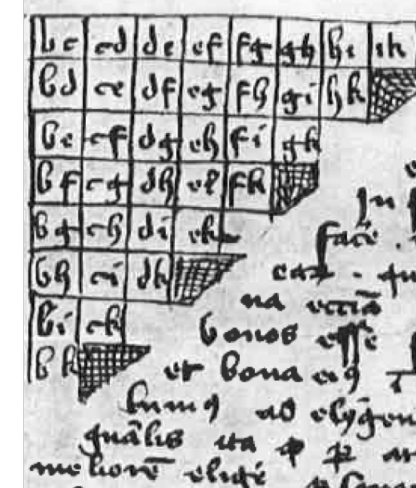 bc cd de ef fg gh hi ik
bd ce df eg fh gi hk
be cf dg eh fi gk
bf cg dh ei fk
bg ch di ek
bh ci dk
bi ck
bk
In
na eccīa
bonos esse
et bona
ad elygen
qualis ita
meliorē eligē